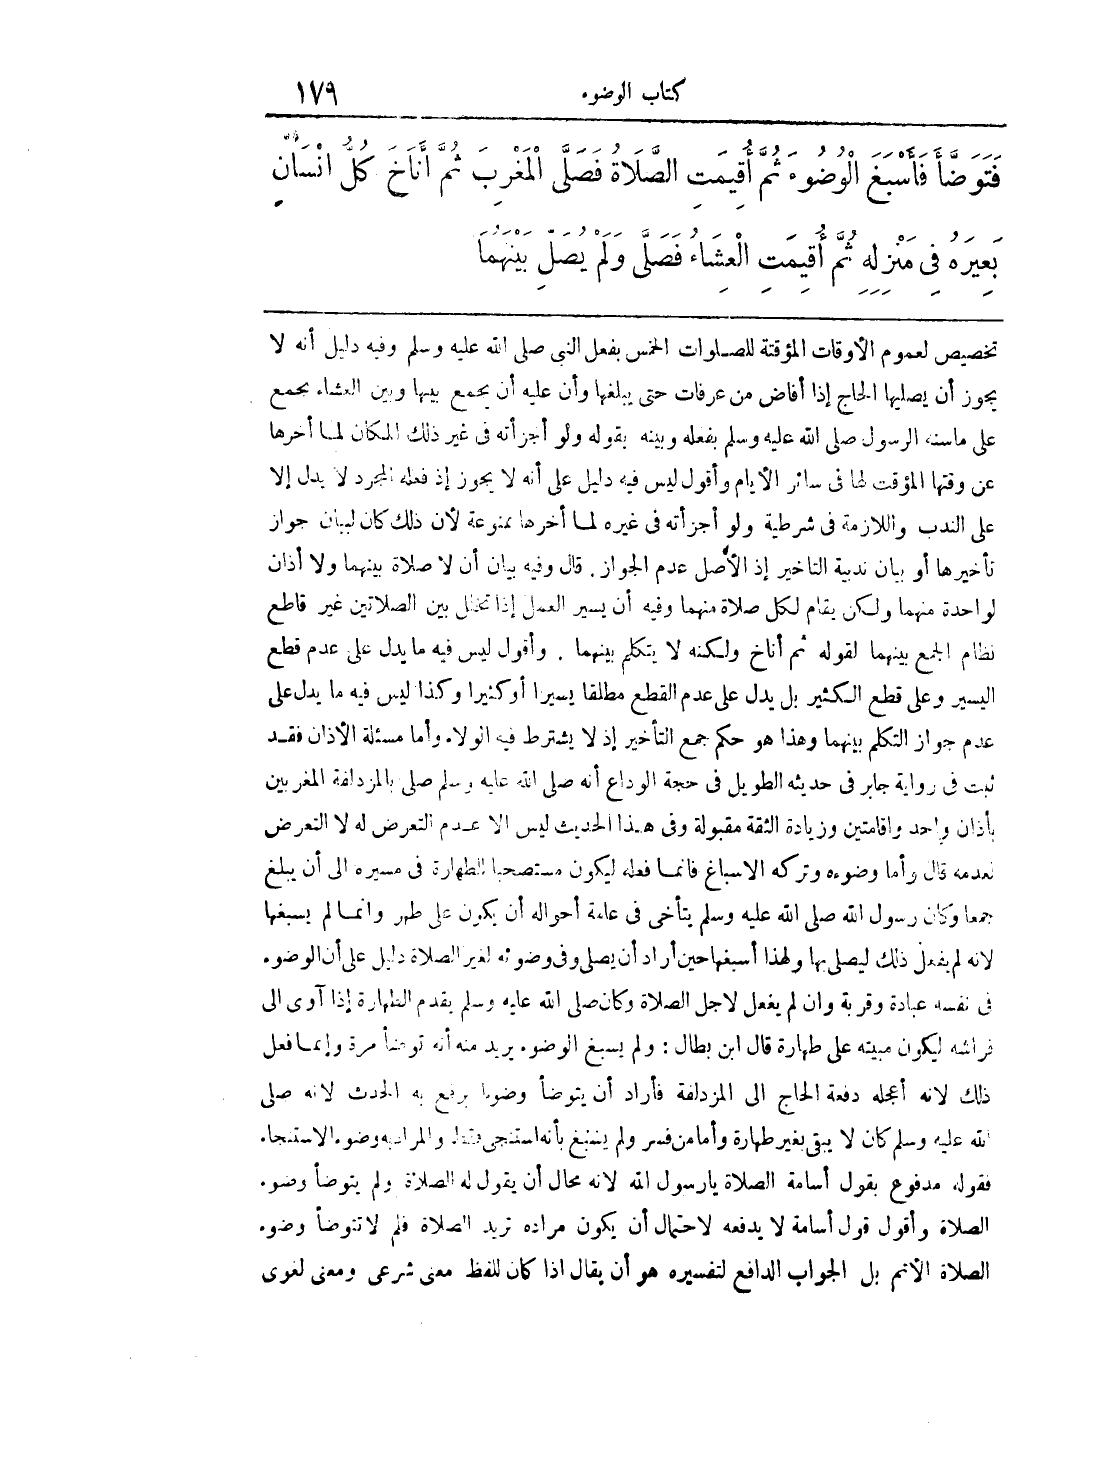 كتاب الوضوء ١٧٩
فَتَوَضَّأَ فَأَسْبَغَ الْوُضُوءَ ثُمَّ أُقِيمَتِ الصَّلَاةُ فَصَلَّى الْمَغْرِبَ ثُمَّ أَنَاخَ كُلُّ انْسَانٍ
بَعِيرَهُ فِى مَنْزِلِهِ ثُمَّ أُقِيمَتِ الْعِشَاءُ فَصَلَّى وَلَمْ يُصَلِّ بَيْنَهُمَا
تخصيص لعموم الأوقات المؤقتة للصلوات الخمس بفعل النبى صلى الله عليه وسلم وفيه دليل أنه لا
يجوز أن يصليها الحاج إذا أفاض من عرفات حتى يبلغها وأن عليه أن يجمع بينها وبين العشاء بجمع
على ماسنه الرسول صلى الله عليه وسلم بفعله وبينه بقوله ولو أجزأته فى غير ذلك المكان لما أخرها
عن وقتها المؤقت لها فى سائر الأيام وأقول ليس فيه دليل على أنه لا يجوز إذ فعله المجرد لا يدل إلا
على الندب واللازمة فى شرطية ولو أجزأته فى غيره لما أخرها ممنوعة لأن ذلك كان لبيان جواز
تأخيرها أو بيان ندبية التاخير إذ الأصل عدم الجواز . قال وفيه بيان أن لا صلاة بينهما ولا أذان
لواحدة منهما ولكن يقام لكل صلاة منهما وفيه أن يسير العمل إذا تخلل بين الصلاتين غير قاطع
نظام الجمع بينهما لقوله ثم أناخ ولكنه لا يتكلم بينهما . وأقول ليس فيه ما يدل على عدم قطع
اليسير وعلى قطع الكثير بل يدل على عدم القطع مطلقا يسيرا أو كثيرا وكذا ليس فيه ما يدل على
عدم جواز التكلم بينهما وهذا هو حكم جمع التأخير إذ لا يشترط فيه الولاء وأما مسئلة الأذان فقد
ثبت فى رواية جابر فى حديثه الطويل فى حجة الوداع أنه صلى الله عليه وسلم صلى بالمزدلفة المغربين
بأذان واحد واقامتين وزيادة الثقة مقبولة وفى هذا الحديث ليس الا عدم التعرض له لا التعرض
لعدمه قال وأما وضوءه وتركه الاسباغ فانما فعله ليكون مستصحبا للطهارة فى مسيره الى أن يبلغ
جمعا وكان رسول الله صلى الله عليه وسلم يتأخى فى عامة أحواله أن يكون على طهر وانما لم يسبغها
لانه لم يفعل ذلك ليصلى بها ولهذا أسبغها حين أراد أن يصلى وفى وضوئه لغير الصلاة دليل على أن الوضوء
فى نفسه عبادة وقربة وان لم يفعل لاجل الصلاة وكان صلى الله عليه وسلم يقدم الطهارة إذا آوى الى
فراشه ليكون مبيته على طهارة قال ابن بطال : ولم يسبغ الوضوء يريد منه أنه توضأ مرة وإنما فعل
ذلك لانه أعجله دفعة الحاج الى المزدلفة فأراد أن يتوضأ وضوءا يرفع به الحدث لانه صلى
الله عليه وسلم كان لا يبقى بغير طهارة وأما من فسر ولم يسبغ بأنه استنجى فقط والمراد به وضوء الاستنجاء
فقوله مدفوع بقول أسامة الصلاة يارسول الله لانه محال أن يقول له الصلاة ولم يتوضأ وضوء
الصلاة وأقول قول أسامة لا يدفعه لاحتمال أن يكون مراده تريد الصلاة فلم لا تتوضأ وضوء
الصلاة الأتم بل الجواب الدافع لتفسيره هو أن يقال اذا كان للفظ معنى شرعى ومعنى لغوى